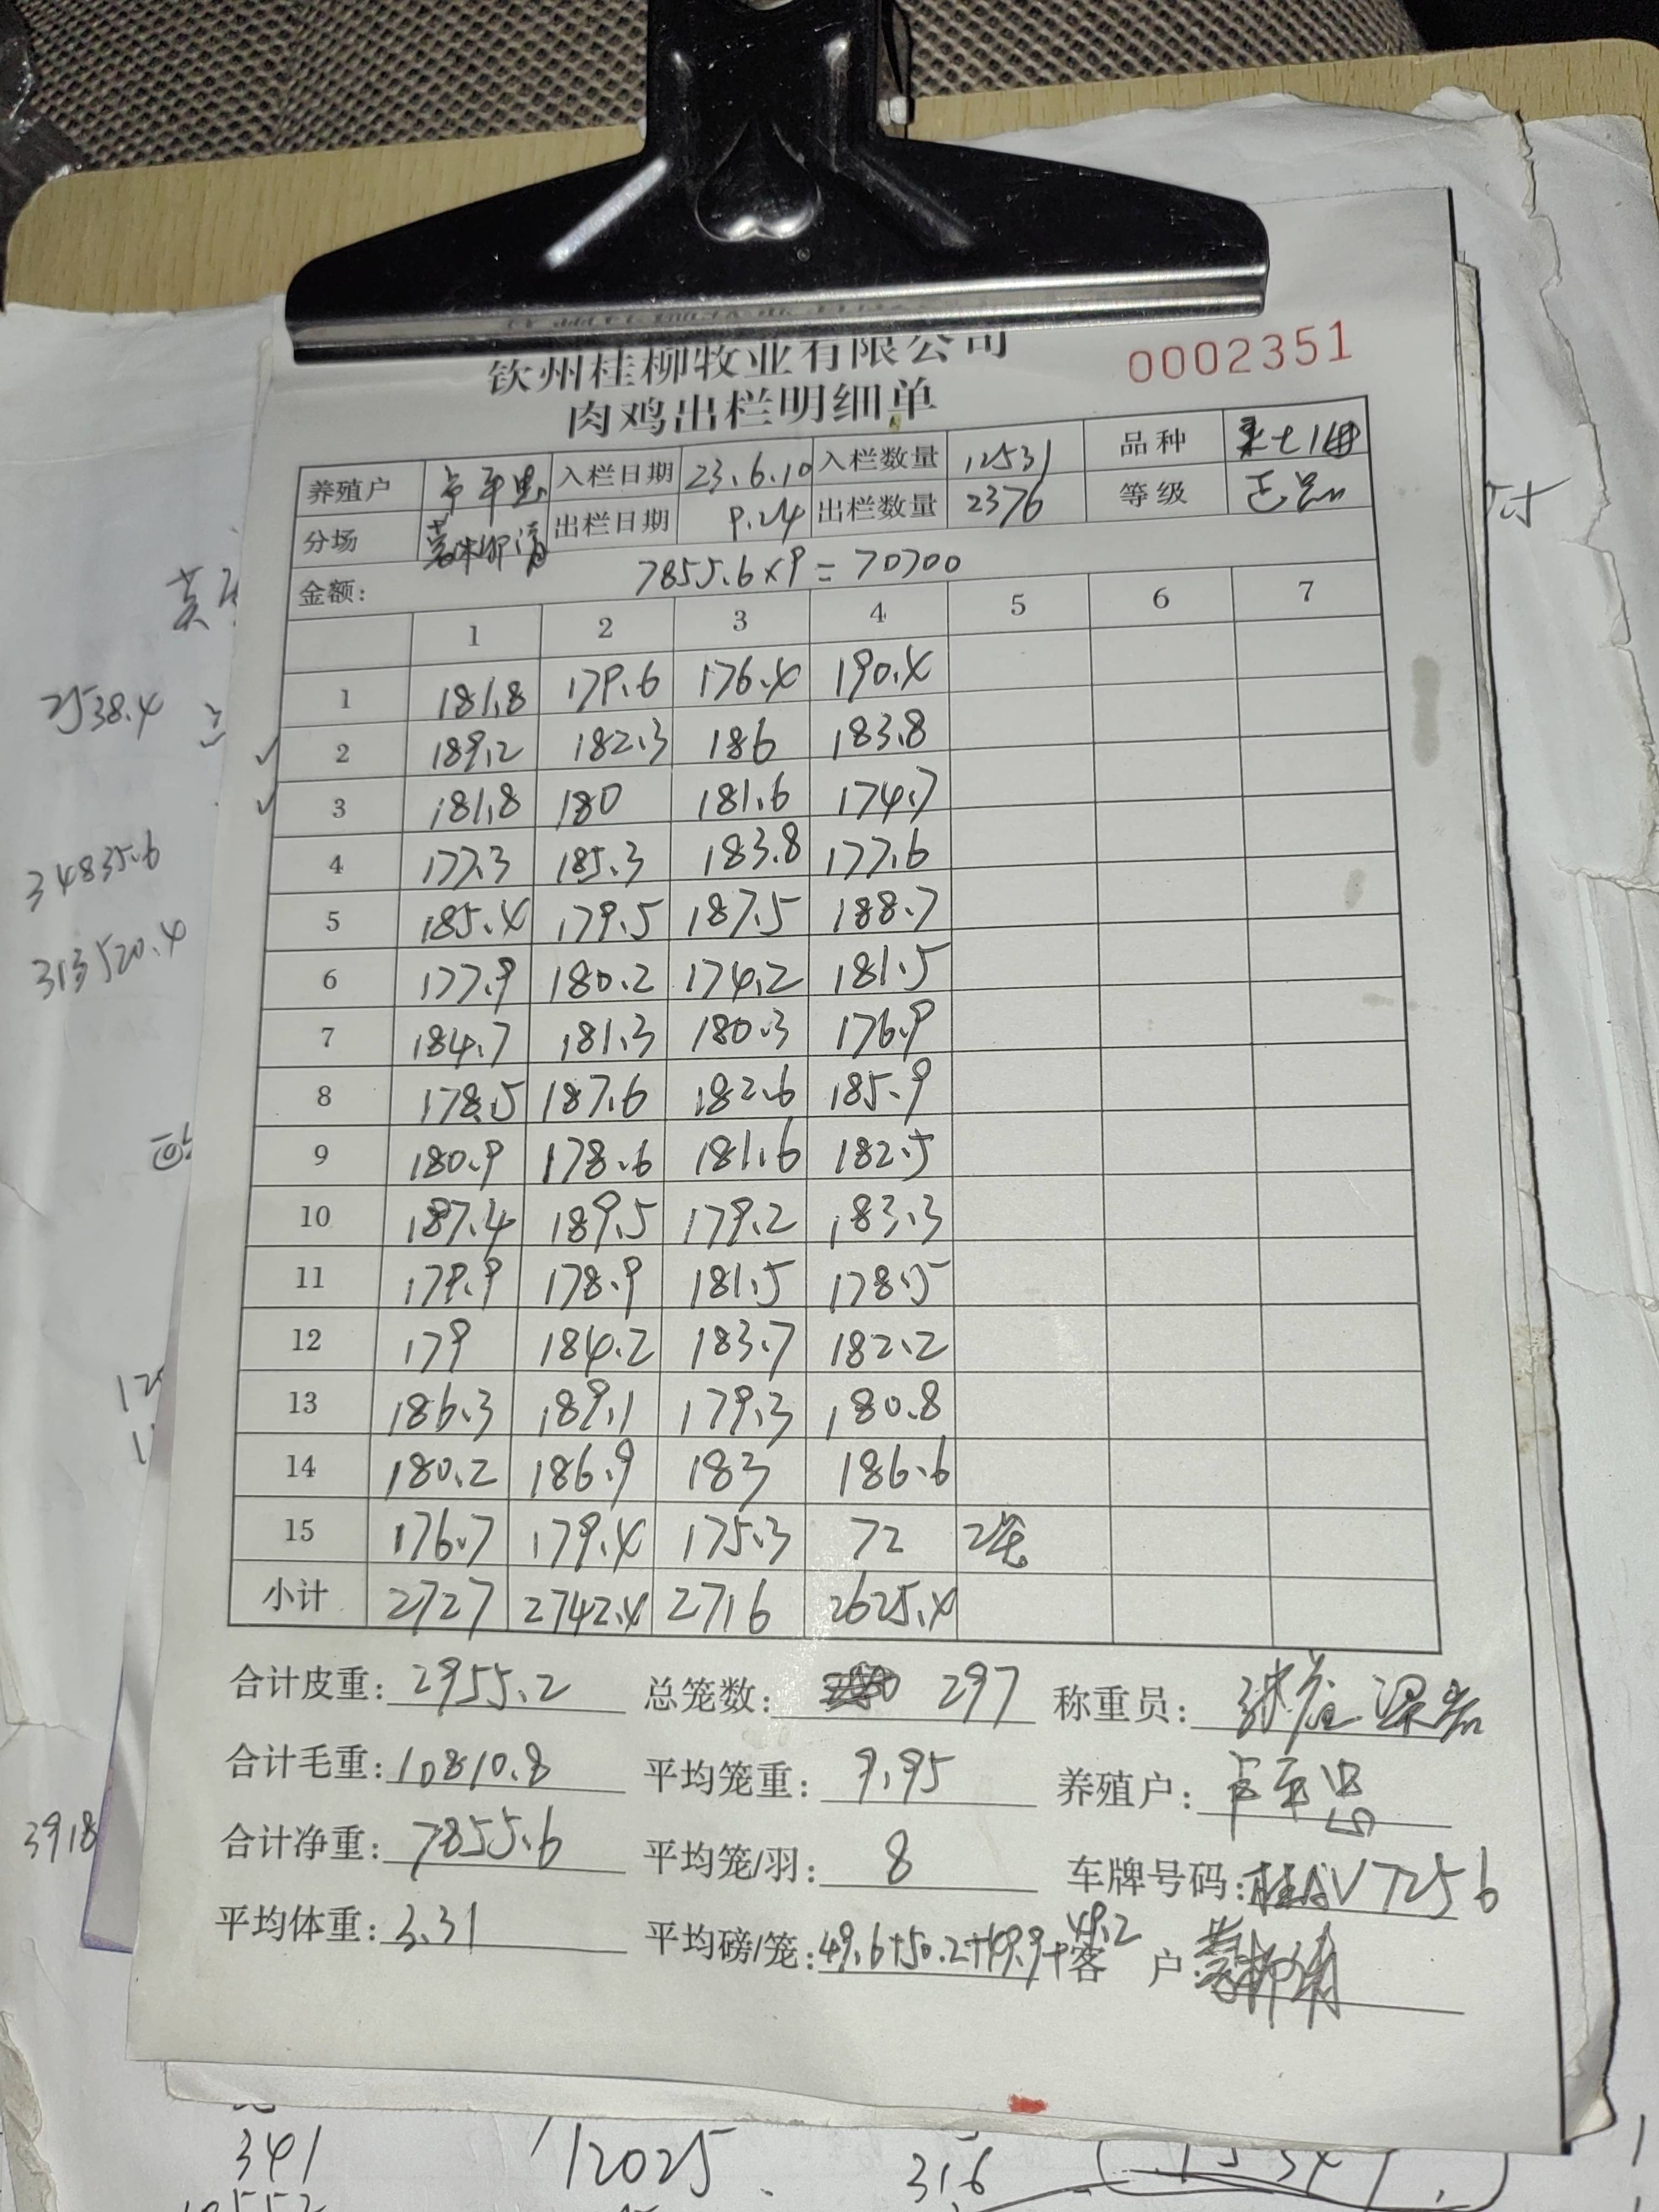 钦州桂柳牧业有限公司
0002351
肉鸡出栏明细单
养殖户 入栏日期 23.6.10 入栏数量 12531 品种
分场 出栏日期 9.24 出栏数量 2376 等级 正品
金额: 7855.6×9=70700
1 2 3 4 5 6 7
1 181.8 179.6 176.4 190.4
2 189.2 182.3 186 183.8
3 181.8 180 181.6 174.7
4 177.3 185.3 183.8 177.6
5 185.4 179.5 187.5 188.7
6 177.9 180.2 174.2 181.5
7 184.7 181.3 180.3 176.9
8 178.5 187.6 182.6 185.9
9 180.9 178.6 181.6 182.5
10 187.4 189.5 179.2 183.3
11 179.9 178.9 181.5 178.5
12 179 184.2 183.7 182.2
13 186.3 189.1 179.3 180.8
14 180.2 186.9 183 186.6
15 176.7 179.4 175.3 72 2笼
小计 2727 2742.4 2716 2625.4
合计皮重: 2955.2 总笼数: 297 称重员:
合计毛重: 10810.8 平均笼重: 9.95 养殖户:
合计净重: 7855.6 平均笼/羽: 8 车牌号码: 桂AV7256
平均体重: 3.31 平均磅/笼: 49.6+50.2+49.9+49.2 客户:
2538.4
34835.6
313520.4
3918
341
12025
316